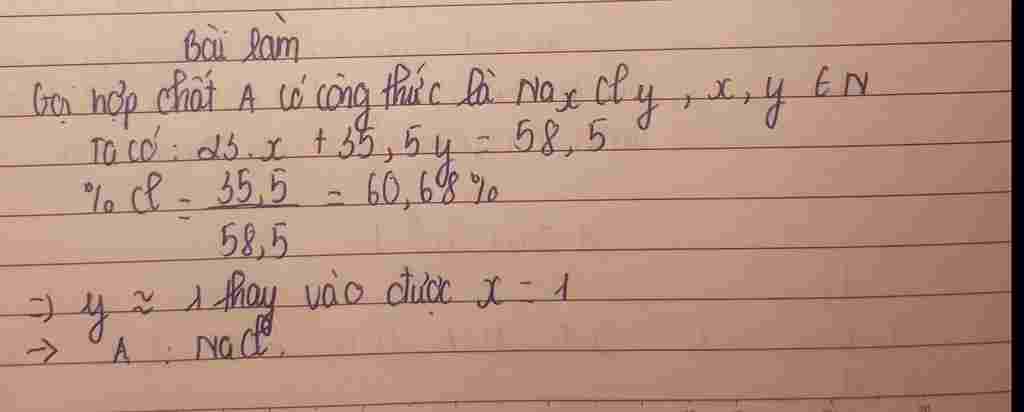 Bài làm
Gọi hợp chất A có công thức là NaxCly, x, y ∈ N
Ta có: 23.x + 35,5y = 58,5
% Cl = 35,5 / 58,5 = 60,68%
=> y ≈ 1 thay vào được x = 1
-> A : NaCl.